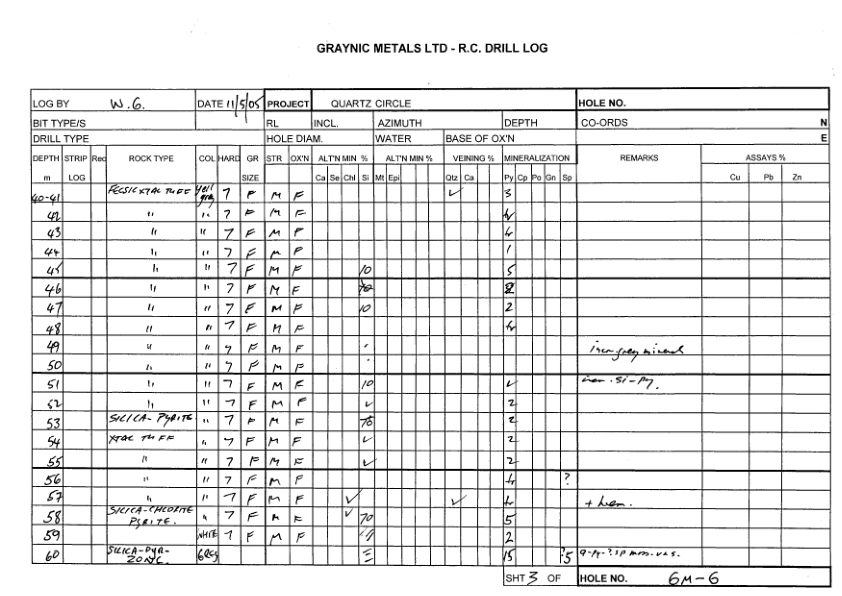 GRAYNIC METALS LTD - R.C. DRILL LOG
LOG BY W.G. DATE 11/5/05 PROJECT QUARTZ CIRCLE HOLE NO.
BIT TYPE/S RL INCL. AZIMUTH DEPTH CO-ORDS N
DRILL TYPE HOLE DIAM. WATER BASE OF OX'N E
DEPTH STRIP Rec ROCK TYPE COL HARD GR STR OX'N ALT'N MIN % ALT'N MIN % VEINING % MINERALIZATION REMARKS ASSAYS %
m LOG SIZE Ca Se Chl Si Mt Epi Qtz Ca Py Cp Po Gn Sp Cu Pb Zn
40-41 FELSIC XTAL TUFF yell gry 7 F M F ✓ 3
42 " " 7 F M F tr
43 " " 7 F M F tr
44 " " 7 F M F 1
45 " " 7 F M F 10 5
46 " " 7 F M F 2
47 " " 7 F M F 10 2
48 " " 7 F M F tr
49 " " 7 F M F grey mineral
50 " " 7 F M F
51 " " 7 F M F 10 ✓ Si-Py.
52 " " 7 F M F ✓ 2
53 SILICA-PYRITE " 7 F M F 2
54 XTAL TUFF " 7 F M F ✓ 2
55 " " 7 F M F ✓ 2
56 " " 7 F M F tr ?
57 " " 7 F M F ✓ ✓ tr + hem.
58 SILICA-CHLORITE PYRITE. " 7 F M F ✓ 70 5
59 WHITE 7 F M F " 2
60 SILICA-PYR- ZONE. GREY = 15 ?5 q-py-?sp
SHT 3 OF HOLE NO. GM-6